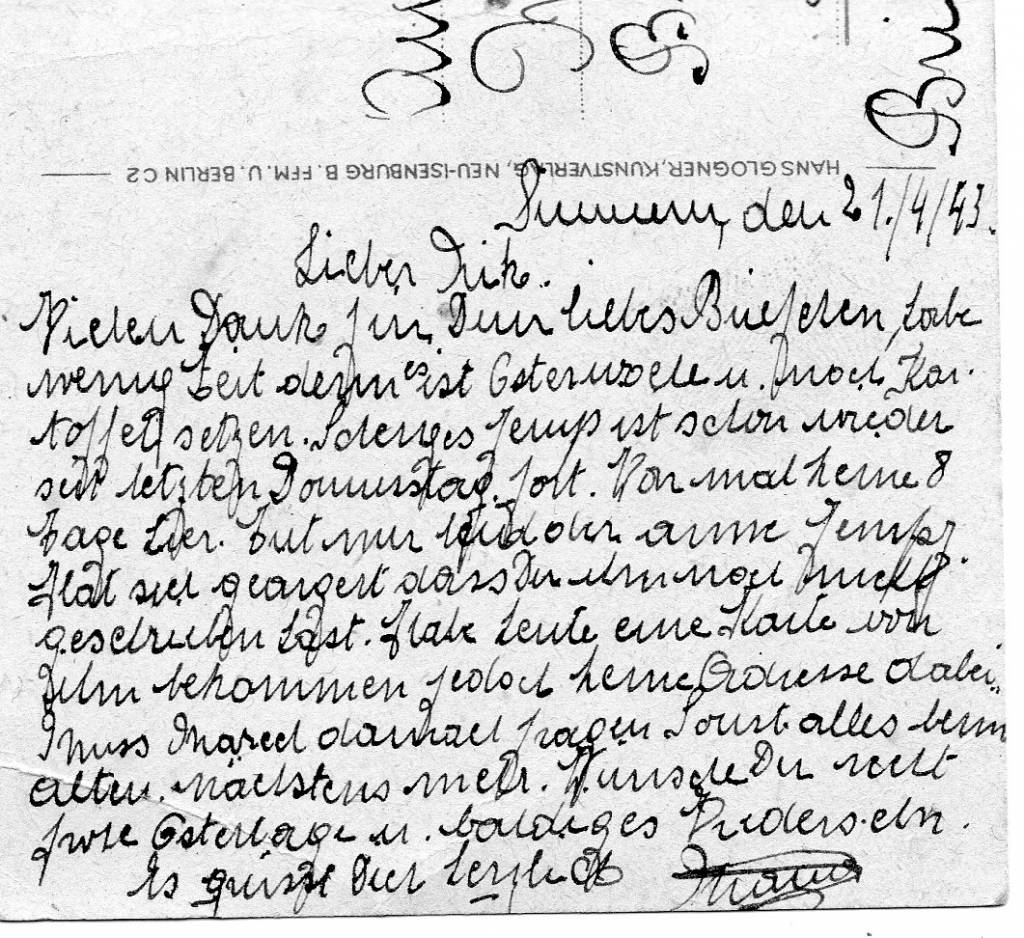 HANS GLOGNER, KUNSTVERLAG, NEU-ISENBURG B. FFM. U. BERLIN C2
den 21./4/43.
Lieber
Vielen Dank für Dein liebes Briefchen, habe
wenig Zeit denn es ist Osterwoche u. noch Kar-
toffel setzen. Schenges Jemp ist schon wieder
seit letzten Donnerstag fort. War mal keine 8
Tage hier. Tut mir leid der arme Jemp.
Hat sich geärgert dass Du ihm noch nicht
geschrieben hast. Habe heute eine Karte von
ihm bekommen jedoch keine Adresse dabei.
Muss Marcel darnach fragen. Sonst alles beim
alten. Nächstens mehr. Wünsche Dir recht
frohe Ostertage u. baldiges Wiedersehn.
Es grüsst Dich herzlich